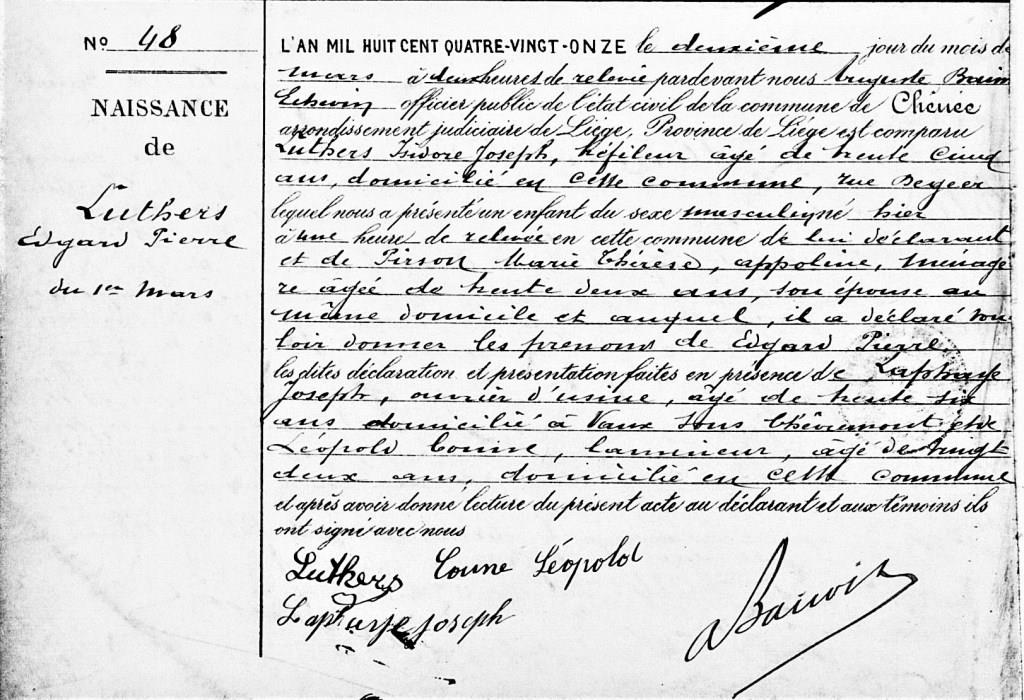 No 48
NAISSANCE
de
Luthers
Edgard Pierre
du 1er Mars
L'AN MIL HUIT CENT QUATRE-VINGT-ONZE le deuxième jour du mois de
Mars à deux heures de relevée pardevant nous Auguste
officier public de l'état civil de la commune de Chênée
arrondissement judiciaire de Liége, Province de Liége est comparu
Luthers Isidore Joseph, tréfileur âgé de trente cinq
ans, domicilié en cette commune, rue
lequel nous a présenté un enfant du sexe masculin né hier
à une heure de relevée en cette commune de lui déclarant
et de Pirson Marie Thérèse, appoline, ménagè
re âgée de trente deux ans, son épouse au
même domicile et auquel, il a déclaré vou
loir donner les prenoms de Edgard Pierre
les dites déclaration et présentation faites en présence de
Joseph, ouvrier d'usine, âgé de trente six
ans domicilié à Vaux sous Chêvremont et de
Léopold Coune, lamineur, âgé de vingt
deux ans, domicilié en cette commune
et après avoir donné lecture du présent acte au déclarant et aux témoins ils
ont signé avec nous
Luthers Coune Léopold
Joseph